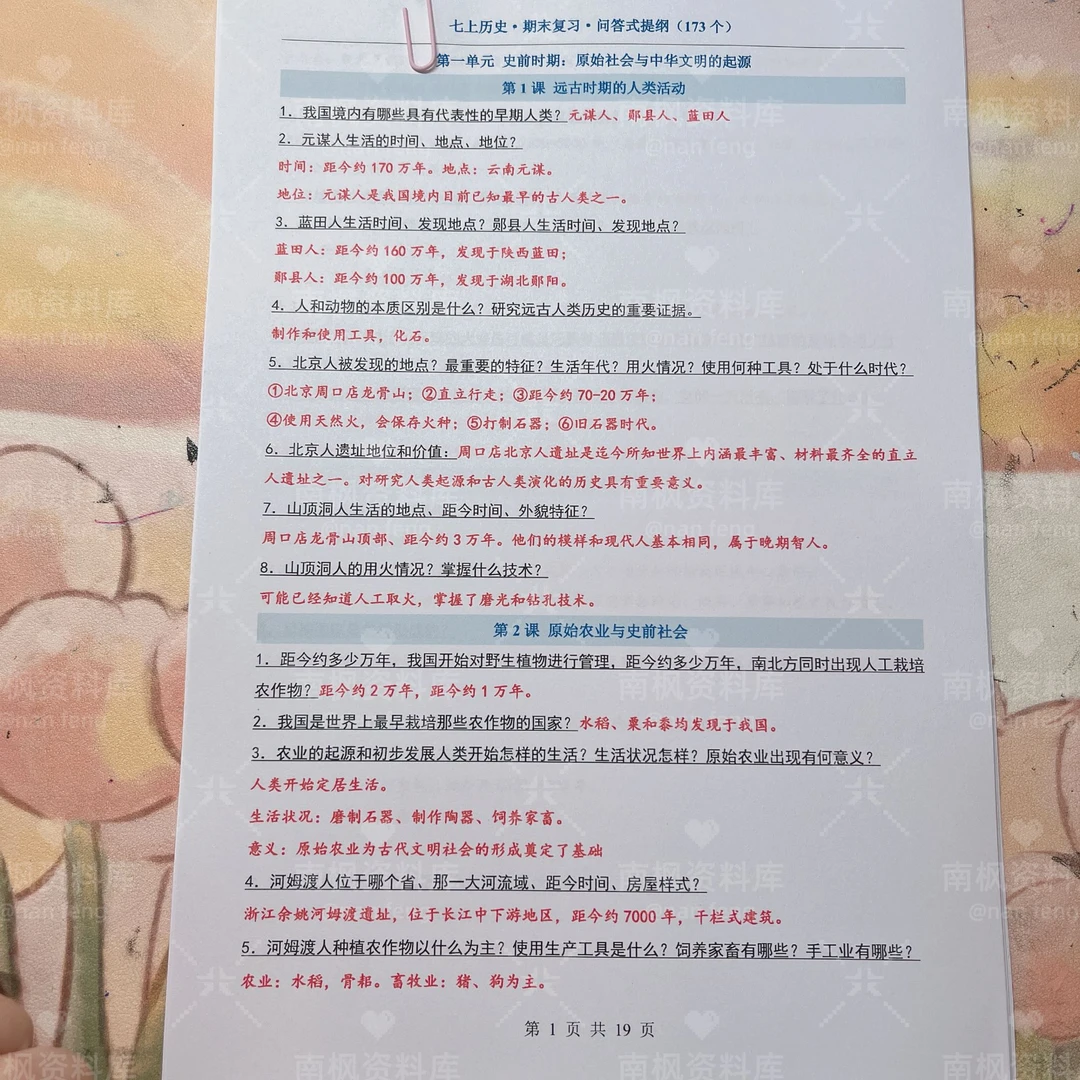 七上历史·期末复习·问答式提纲（173 个）
第一单元 史前时期：原始社会与中华文明的起源
第 1 课 远古时期的人类活动
1. 我国境内有哪些具有代表性的早期人类？元谋人、郧县人、蓝田人
2. 元谋人生活的时间、地点、地位？
时间：距今约 170 万年。地点：云南元谋。
地位：元谋人是我国境内目前已知最早的古人类之一。
3. 蓝田人生活时间、发现地点？郧县人生活时间、发现地点？
蓝田人：距今约 160 万年，发现于陕西蓝田；
郧县人：距今约 100 万年，发现于湖北郧阳。
4. 人和动物的本质区别是什么？研究远古人类历史的重要证据。
制作和使用工具，化石。
5. 北京人被发现的地点？最重要的特征？生活年代？用火情况？使用何种工具？处于什么时代？
①北京周口店龙骨山；②直立行走；③距今约 70-20 万年；
④使用天然火，会保存火种；⑤打制石器；⑥旧石器时代。
6. 北京人遗址地位和价值：周口店北京人遗址是迄今所知世界上内涵最丰富、材料最齐全的直立
人遗址之一。对研究人类起源和古人类演化的历史具有重要意义。
7. 山顶洞人生活的地点、距今时间、外貌特征？
周口店龙骨山顶部、距今约 3 万年。他们的模样和现代人基本相同，属于晚期智人。
8. 山顶洞人的用火情况？掌握什么技术？
可能已经知道人工取火，掌握了磨光和钻孔技术。
第 2 课 原始农业与史前社会
1. 距今约多少万年，我国开始对野生植物进行管理，距今约多少万年，南北方同时出现人工栽培
农作物？距今约 2 万年，距今约 1 万年。
2. 我国是世界上最早栽培那些农作物的国家？水稻、粟和黍均发现于我国。
3. 农业的起源和初步发展人类开始怎样的生活？生活状况怎样？原始农业出现有何意义？
人类开始定居生活。
生活状况：磨制石器、制作陶器、饲养家畜。
意义：原始农业为古代文明社会的形成奠定了基础
4. 河姆渡人位于哪个省、那一大河流域、距今时间、房屋样式？
浙江余姚河姆渡遗址，位于长江中下游地区，距今约 7000 年，干栏式建筑。
5. 河姆渡人种植农作物以什么为主？使用生产工具是什么？饲养家畜有哪些？手工业有哪些？
农业：水稻，骨耜。畜牧业：猪、狗为主。
第 1 页 共 19 页
南枫资料库
@nan feng